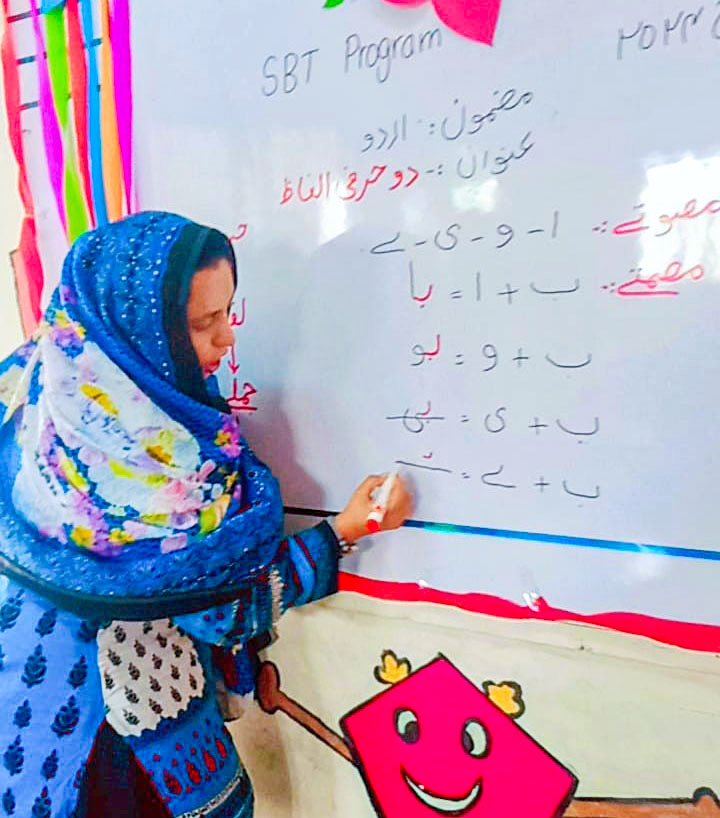 SBT Program
مضمون:- اردو
عنوان:- دو حرفی الفاظ
مصوتے:- ا - و - ی - ے
مصمتے:- ب + ا = با
ب + و = بو
ب + ی = بی
ب + ے =
جملے